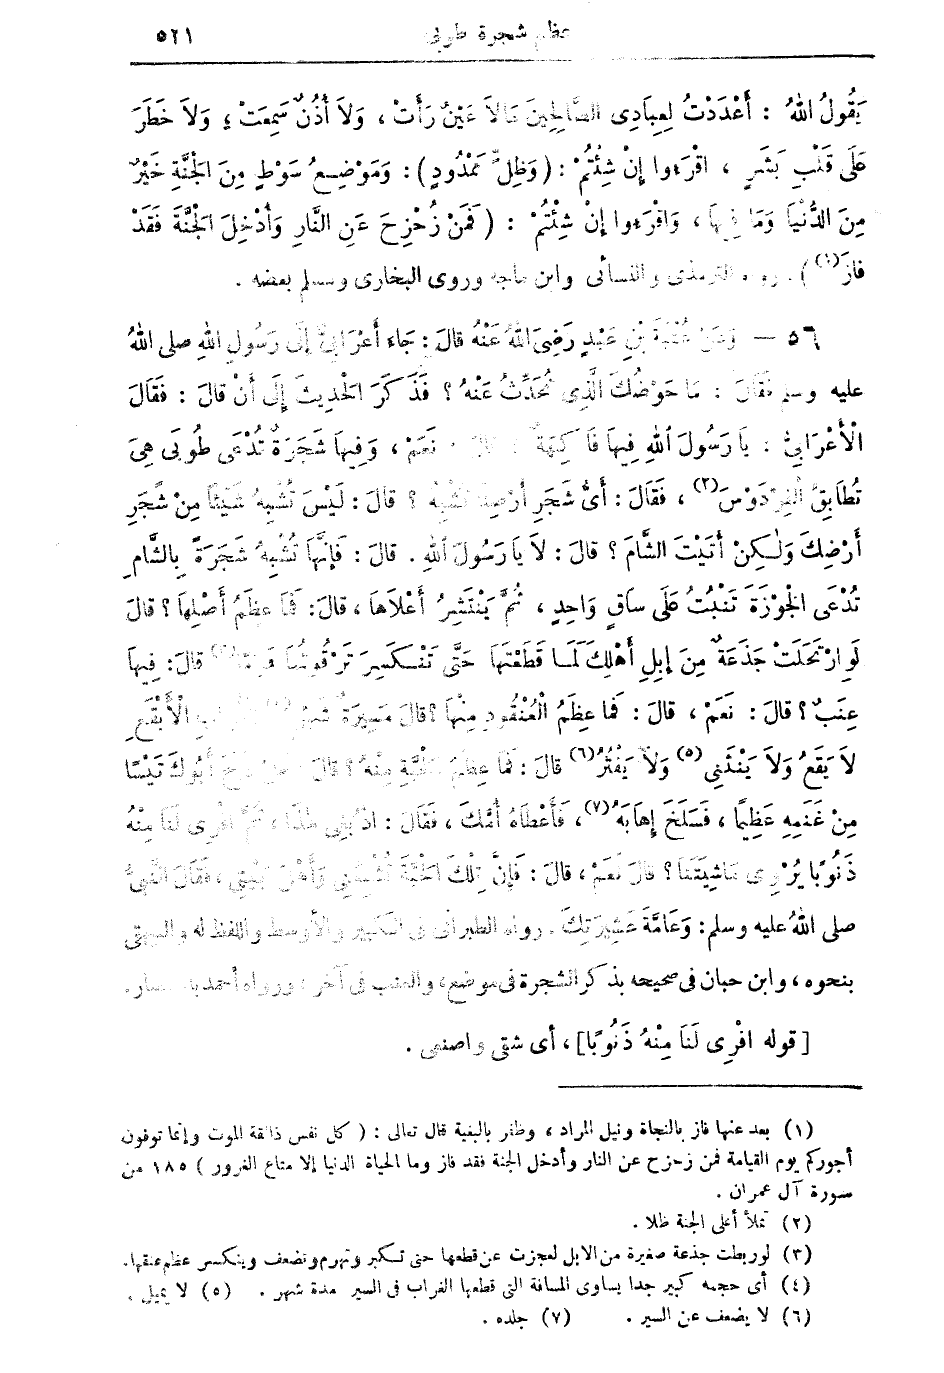 عظم شجرة طوبى ٥٢١
يَقُولُ اللهُ : أَعْدَدْتُ لِعِبَادِى الصَّالِحِينَ مَالَا عَيْنٌ رَأَتْ ، وَلَا أُذُنٌ سَمِعَتْ ، وَلَا خَطَرَ
عَلَى قَلْبِ بَشَرٍ ، اقْرَءوا إِنْ شِئْتُمْ : ( وَظِلٍّ مَمْدُودٍ ) : وَمَوْضِعُ سَوْطٍ مِنَ الْجَنَّةِ خَيْرٌ
مِنَ الدُّنْيَا وَمَا فِيهَا ، وَاقْرَءوا إِنْ شِئْتُمْ : ( فَمَنْ زُحْزِحَ عَنِ النَّارِ وَأُدْخِلَ الْجَنَّةَ فَقَدْ
فَازَ(١) ) . رواه الترمذى والنسائى وابن ماجه وروى البخارى ومسلم بعضه .
٥٦ — وَعَنْ عُتْبَةَ بْنِ عَبْدٍ رَضِىَ اللهُ عَنْهُ قَالَ : جَاءَ أَعْرَابِىٌّ إِلَى رَسُولِ اللهِ صلى اللهُ
عليه وسلم فَقَالَ : مَا حَوْضُكَ الَّذِى تُحَدِّثُ عَنْهُ ؟ فَذَكَرَ الْحَدِيثَ إِلَى أَنْ قَالَ : فَقَالَ
الْأَعْرَابِىُّ : يَا رَسُولَ اللهِ فِيهَا فَاكِهَةٌ ؟ قَالَ : نَعَمْ ، وَفِيهَا شَجَرَةٌ تُدْعَى طُوبَى هِىَ
تُطَابِقُ الْفِرْدَوْسَ(٢) ، فَقَالَ : أَىُّ شَجَرِ أَرْضِنَا تُشْبِهُ ؟ قَالَ : لَيْسَ تُشْبِهُ شَيْئًا مِنْ شَجَرِ
أَرْضِكَ وَلٰكِنْ أَتَيْتَ الشَّامَ ؟ قَالَ : لَا يَا رَسُولَ اللهِ . قَالَ : فَإِنَّهَا تُشْبِهُ شَجَرَةً بِالشَّامِ
تُدْعَى الْجَوْزَةَ تَنْبُتُ عَلَى سَاقٍ وَاحِدٍ ، ثُمَّ يَنْتَشِرُ أَعْلَاهَا ، قَالَ : فَمَا عِظَمُ أَصْلِهَا ؟ قَالَ
لَوِ ارْتَحَلَتْ جَذَعَةٌ مِنَ إِبِلِ أَهْلِكَ لَمَا قَطَعْتَهَا حَتَّى تَنْكَسِرَ تَرْقُوَتُهَا قَالَ : فِيهَا
عِنَبٌ ؟ قَالَ : نَعَمْ ، قَالَ : فَمَا عِظَمُ الْعُنْقُودِ مِنْهَا ؟ قَالَ مَسِيرَةُ شَهْرٍ الْأَبْقَعِ
لَا يَقَعُ وَلَا يَنْثَنِى(٥) وَلَا يَفْتُرُ(٦) قَالَ : فَمَا عِظَمُ الْحَبَّةِ مِنْهُ ؟ قَالَ : أَبُوكَ تَيْسًا
مِنْ غَنَمِهِ عَظِيمًا ، فَسَلَخَ إِهَابَهُ(٧) ، فَأَعْطَاهُ أُمَّكَ ، فَقَالَ : ادْبُغِى هٰذَا ، ثُمَّ افْرِى لَنَا مِنْهُ
ذَنُوبًا يُرْوِى مَاشِيَتَنَا ؟ قَالَ نَعَمْ ، قَالَ : فَإِنَّ تِلْكَ الْحَبَّةَ تُشْبِعُنِى وَأَهْلَ بَيْتِى ، فَقَالَ النَّبِىُّ
صلى اللهُ عليه وسلم : وَعَامَّةَ عَشِيرَتِكَ . رواه الطبرانى فى الكبير والأوسط واللفظ له والبيهقى
بنحوه ، وابن حبان فى صحيحه بذكر الشجرة فى موضع ، والعنب فى آخر ، ورواه أحمد
[ قوله افْرِى لَنَا مِنْهُ ذَنُوبًا ] ، أى شقى واصنعى .
(١) بعد عنها فاز بالنجاة ونيل المراد ، وظفر بالبغية قال تعالى : ( كل نفس ذائقة الموت وإنما توفون
أجوركم يوم القيامة فمن زحزح عن النار وأدخل الجنة فقد فاز وما الحياة الدنيا إلا متاع الغرور ) ١٨٥ من
سورة آل عمران .
(٢) تملأ أعلى الجنة ظلا .
(٣) لو ربطت جذعة صغيرة من الابل لعجزت عن قطعها حتى تكبر وتهرم وتضعف وينكسر عظم عنقها.
(٤) أى حجمه كبير جدا يساوى المسافة التى قطعها الغراب فى السير مدة شهر . (٥) لا يميل .
(٦) لا يضعف عن السير . (٧) جلده .